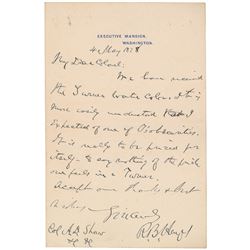 EXECUTIVE MANSION,
WASHINGTON.
4 May 1878
My Dear Colonel:
We have received
the Turner water color. It is
more easily understood than I
expected of one of
It is really to be prized for
itself - to say nothing of the pride
one feels in a Turner.
Accept our thanks & best
wishes
Sincerely
R. B. Hayes
Col A D Shaw